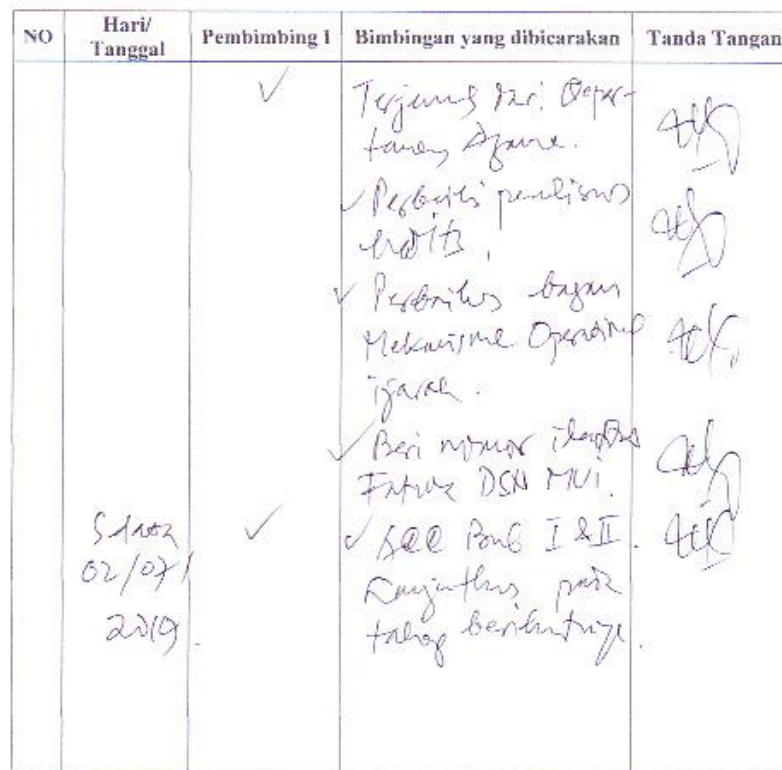 NO Hari/ Tanggal Pembimbing I Bimbingan yang dibicarakan Tanda Tangan
Terjemah dari Depar-
temen Agama.
Perbaiki penulisan
hadits,
Perbaikan bagan
Mekanisme Operasional
ijarah.
Beri nomor
Fatwa DSN MUI.
Selasa ACC Bab I & II.
02/07/ Lanjutkan pada
2019. tahap berikutnya.